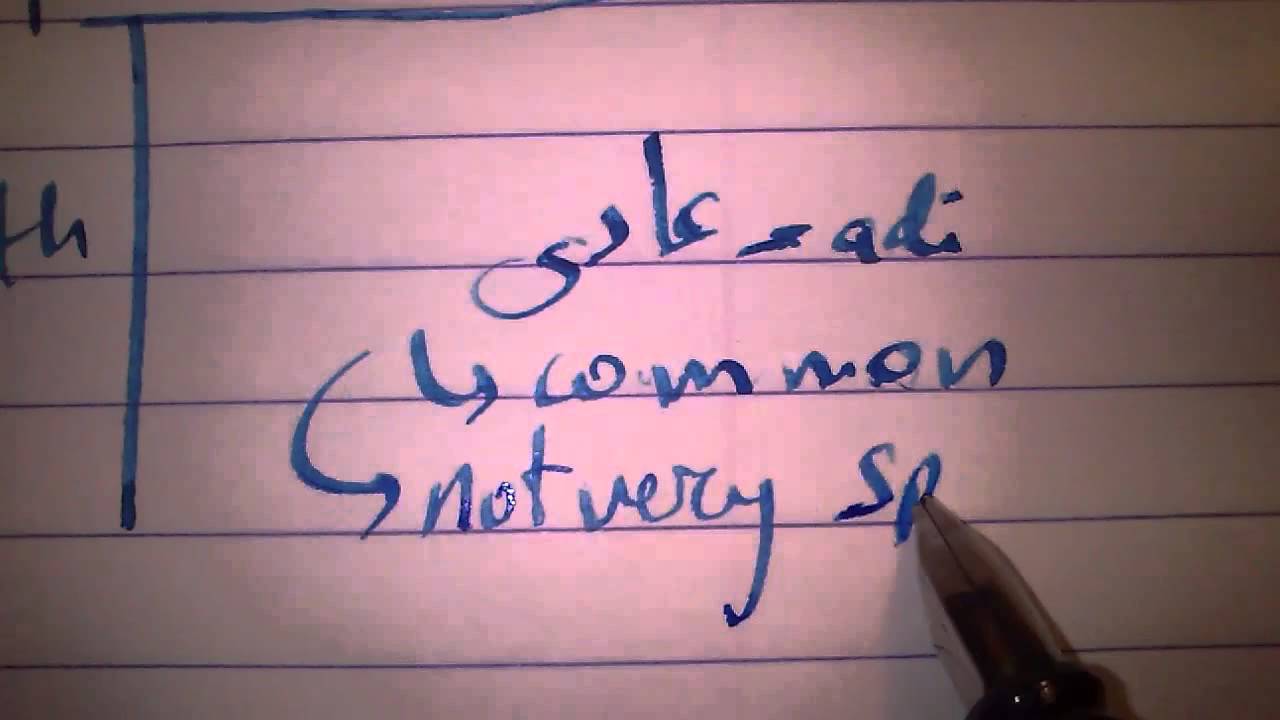 th
عادى - adi
↳ common
not very sp